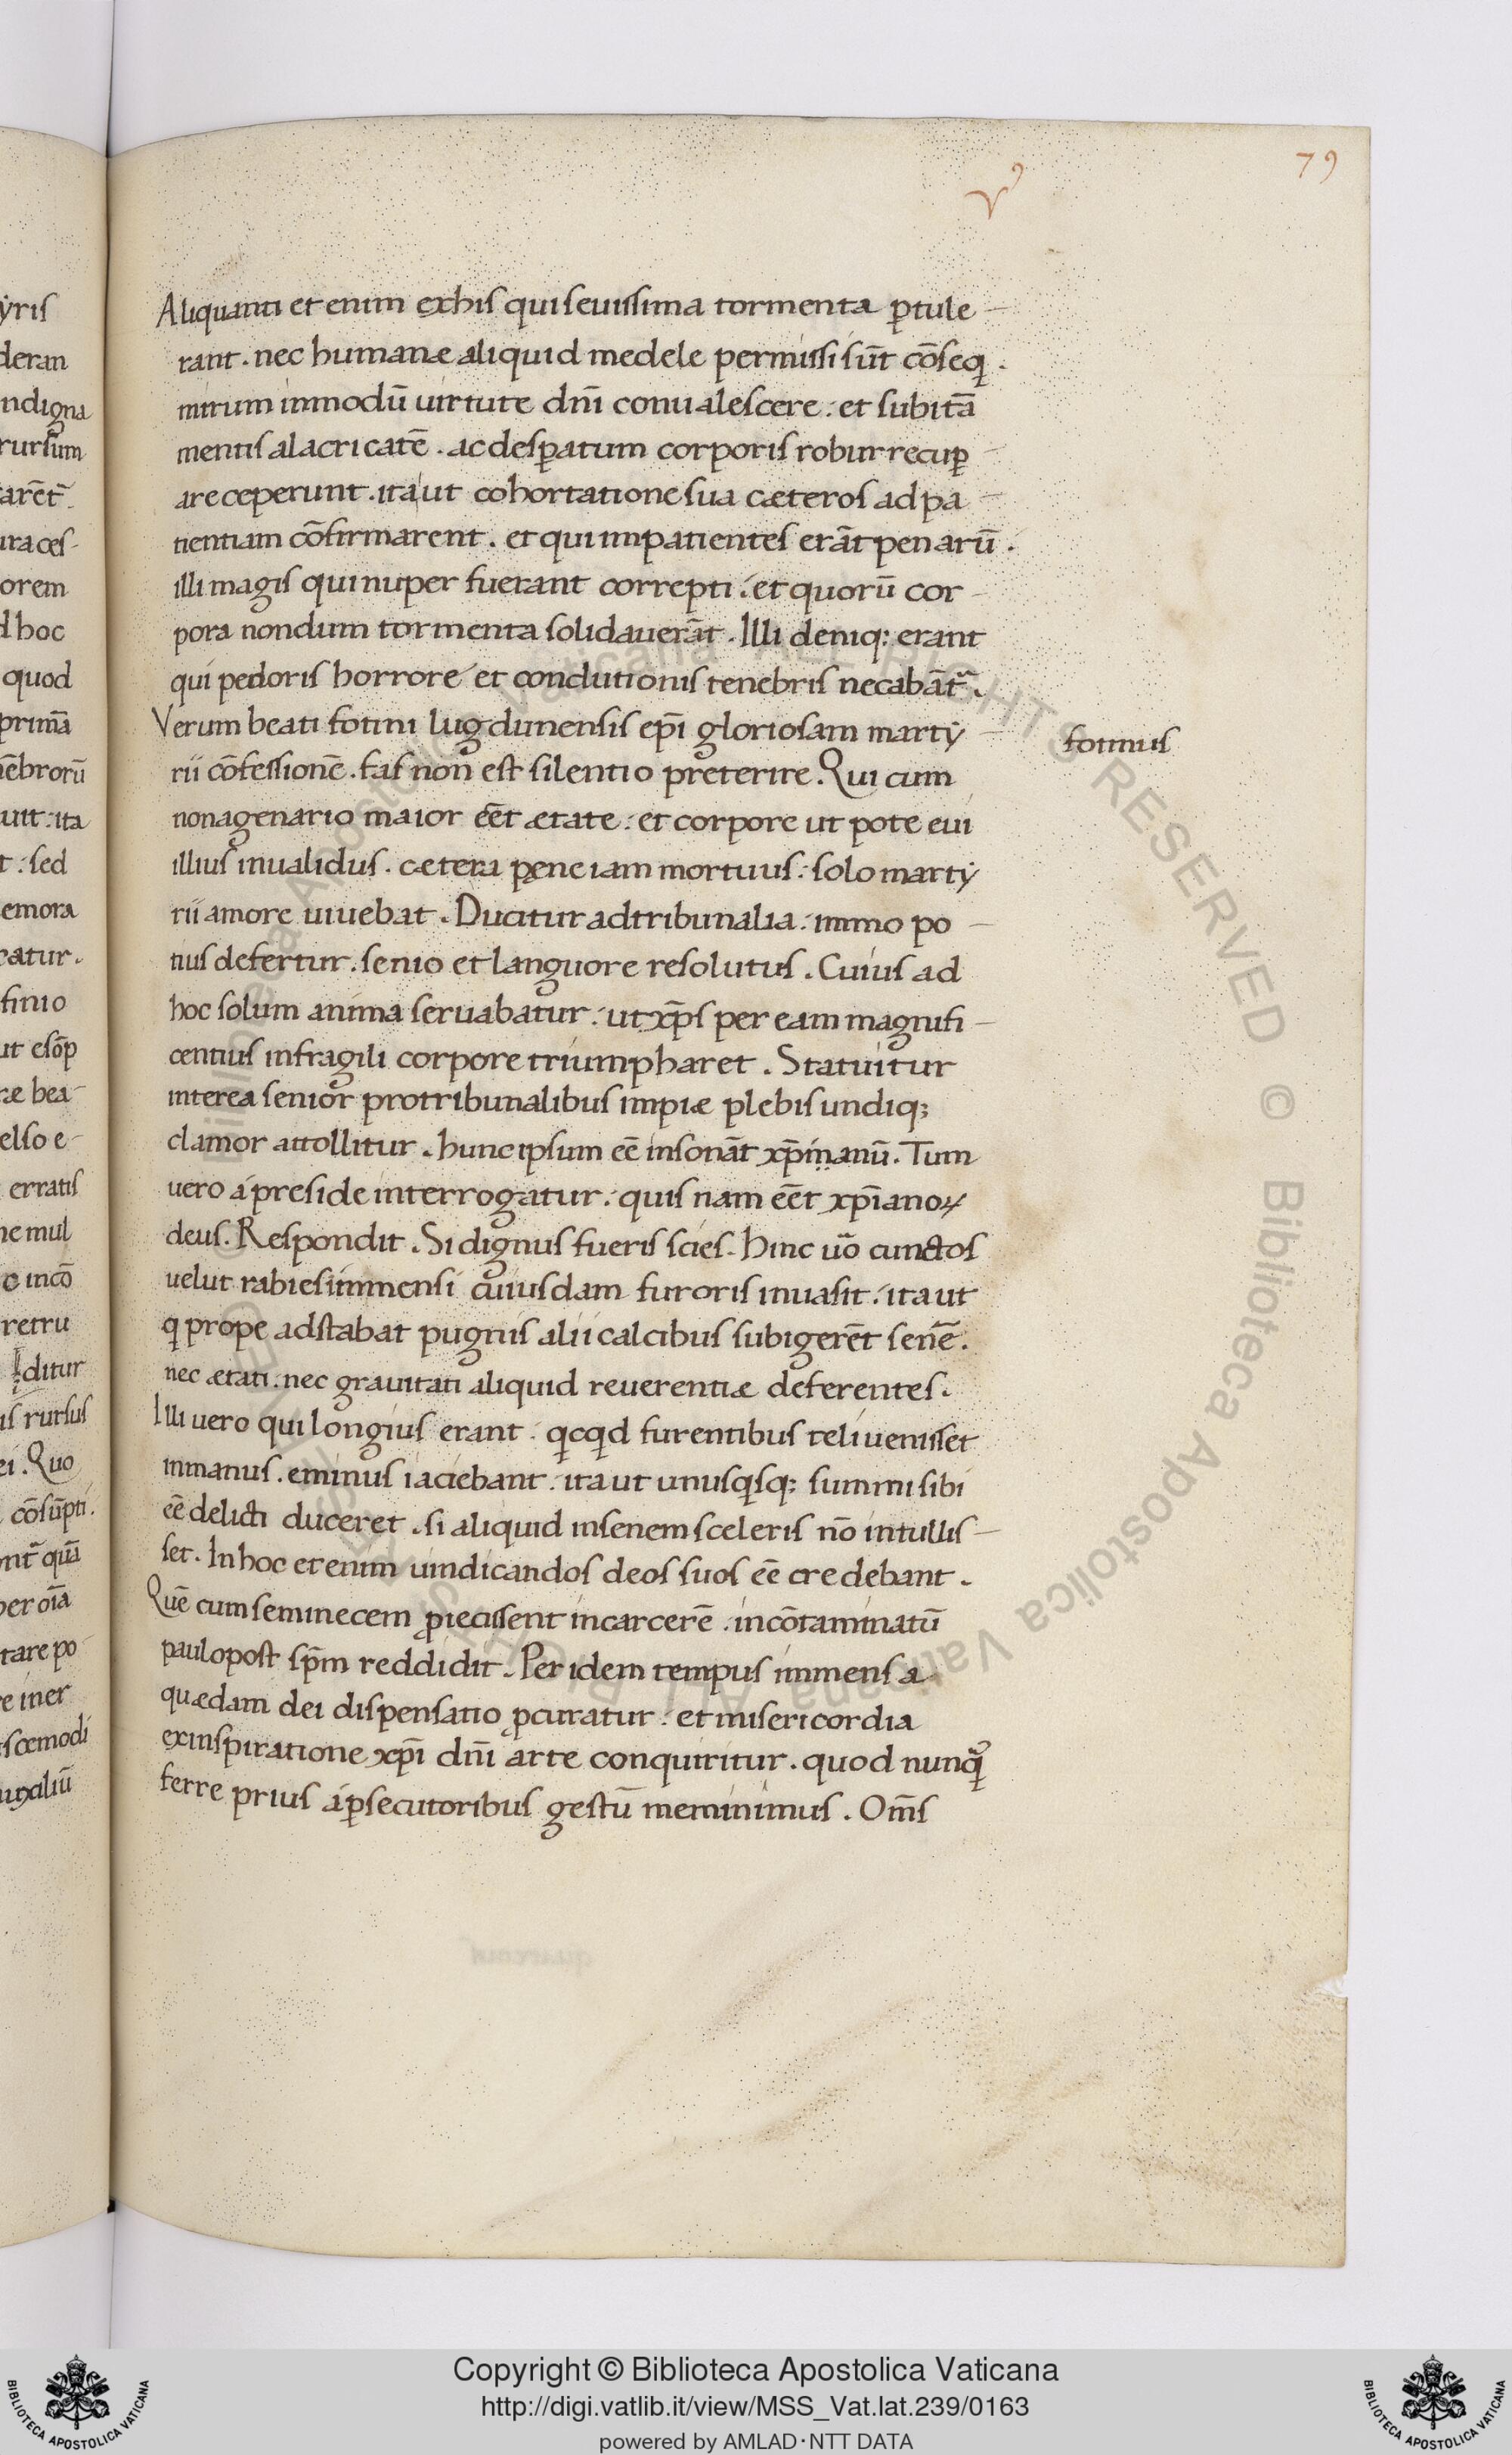 79
v⁹
Aliquanti et enim exhis qui seuissima tormenta ꝑtule-
rant. nec humanæ aliquid medele permissi sūt cōseq̨.
mirum inmodū uirtute dn̄i conualescere: et subitā
mentis alacricatē. ac desꝑatum corporis robur recuꝑ
are ceperunt. ita ut cohortatione sua cæteros ad pa-
tientiam cōfirmarent. et qui impatientes erāt penarū.
illi magis qui nuper fuerant correpti: et quorū cor-
pora nondum tormenta solidauerāt. Illi deniq; erant
qui pedoris horrore et conclutionis tenebris necabāt᷑.
Verum beati fotini lugdunensis ep̄i gloriosam marty-
fotinus
rii cōfessionē. fas non est silentio preterire. Qui cum
nonagenario maior eēt ætate: et corpore ut pote eui
illius inualidus. cætera pęne iam mortuus: solo marty
rii amore uiuebat. Ducitur adtribunalia: immo po-
tius defertur. senio et languore resolutus. Cuius ad
hoc solum anima seruabatur: ut xp̄s per eam magnifi-
centius infragili corpore triumpharet. Statuitur
interea senior protribunalibus impiæ plebis undiq;
clamor attollitur. hunc ipsum eē insonāt xp̄ṃanū. Tum
uero á preside interrogatur: quis nam eēt xp̄ianoꝝ
deus. Respondit. Si dignus fueris scies. hinc uo᷑ cunctos
uelut rabies immensi cuiusdam furoris inuasit: ita ut
q̨ prope adstabat pugnis alii calcibus subigerēt senē.
nec ætati. nec grauitati aliquid reuerentiæ deferentes.
Illi uero qui longius erant: q̨cq̨d furentibus teli uenisset
inmanus. eminus iaciebant: ita ut unusq̨sq; summi sibi
eē delicti duceret. si aliquid insenem sceleris nō intullis-
set. In hoc etenim uindicandos deos suos eē credebant.
Quē cum seminecem ꝓiecissent incarcerē: incōtaminatū
paulopost sp̄m reddidit. Per idem tempus immensa
quædam dei dispensatio ꝓcuratur: et misericordia
exinspiratione xp̄i dn̄i arte conquiritur. quod nunq̨᷑
ferre prius á ꝑsecutoribus gestū meminimus. Om̄s
Copyright © Biblioteca Apostolica Vaticana
http://digi.vatlib.it/view/MSS_Vat.lat.239/0163
powered by AMLAD·NTT DATA